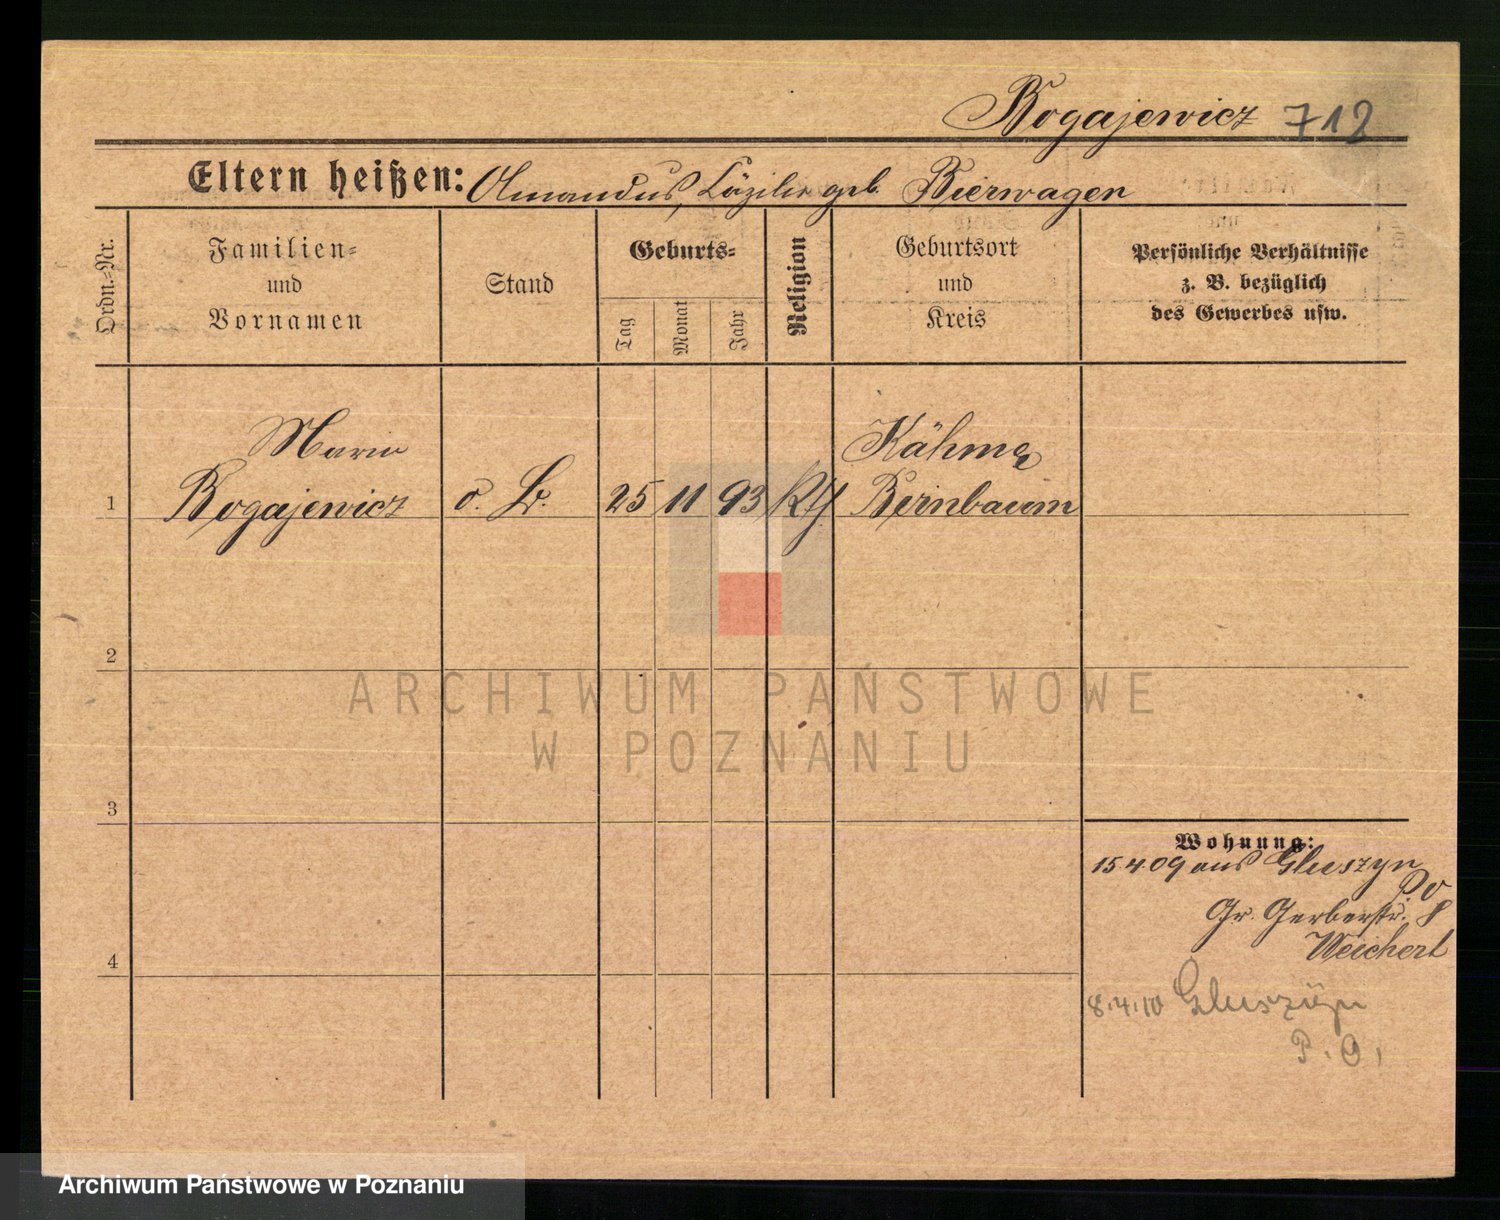 Rogajewicz 712
Eltern heißen: Amandus, Läzilie geb. Bierwagen
Ordn.-Nr.
Familien-
und
Vornamen
Stand
Geburts-
Tag
Monat
Jahr
Religion
Geburtsort
und
Kreis
Persönliche Verhältnisse
z. B. bezüglich
des Gewerbes usw.
Marie
Kähme
1 Rogajewicz o. B. 25 11 93 Kth. Birnbaum
2
ARCHIWUM PAŃSTWOWE
W POZNANIU
3
Wohnung:
15 4 09 aus Gluszyn
Po
Gr. Gerberstr. 8
Weichert
4
8.4.10 Gluszyn
P. O.
Archiwum Państwowe w Poznaniu